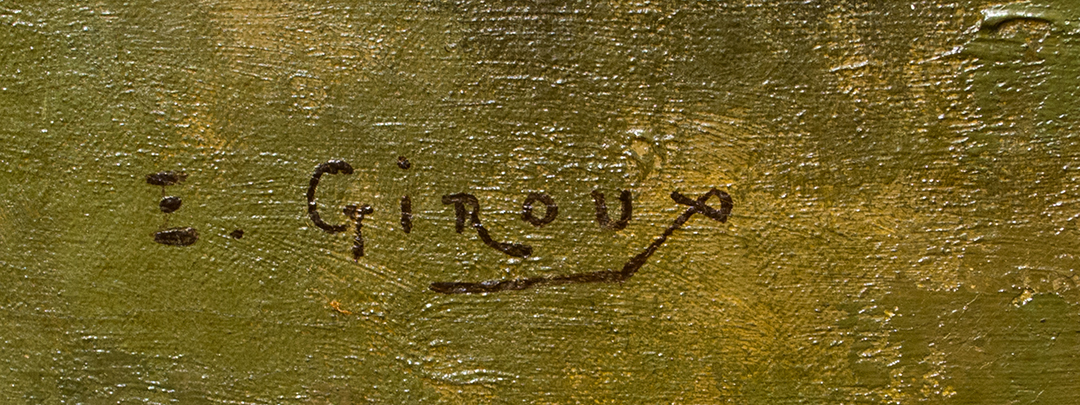 E. Giroux